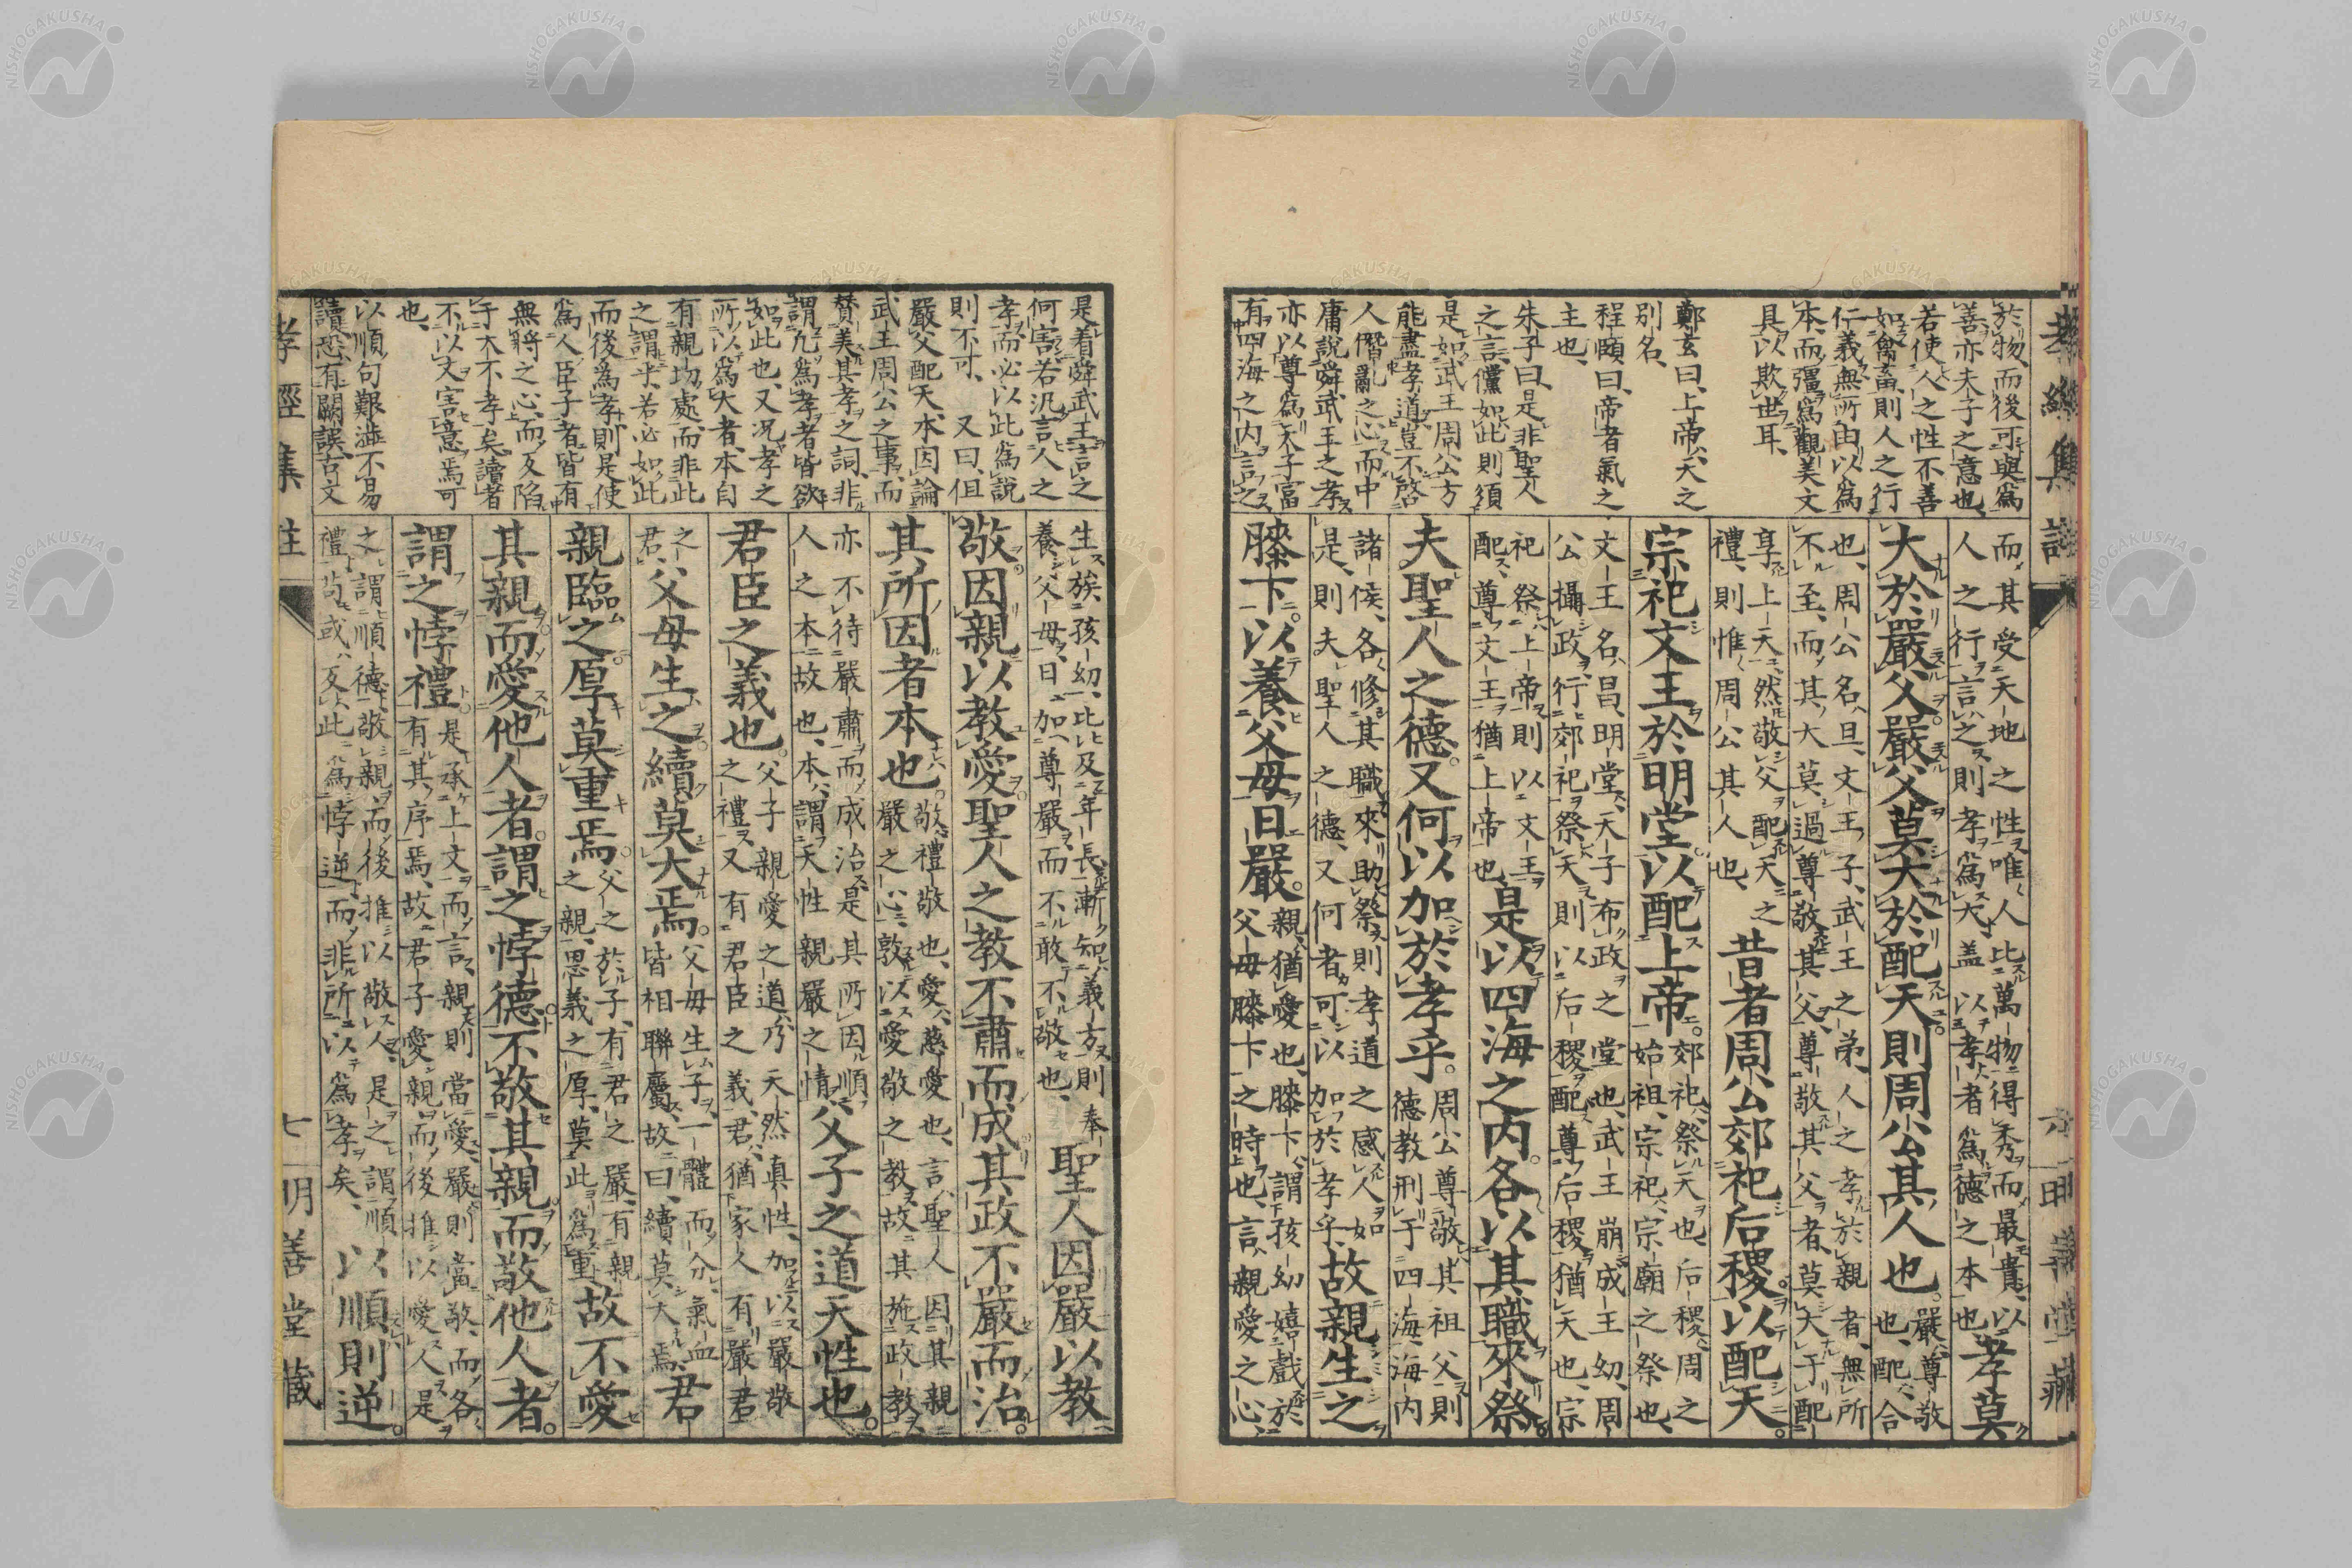 於物而後可與爲
善亦夫子之意也
若使人之性不善
如禽畜則人之行
仁義無所由以爲
本而彊爲觀美文
具以欺世耳
鄭玄曰上帝天之
別名
程頤曰帝者氣之
主也
朱子曰是非聖人
之言儻如此則須
是如武王周公方
能盡孝道豈不啓
人僭亂之心而中
庸說舜武王之孝
亦以尊爲天子富
有四海之内言之
而其受天地之性唯人比萬物得秀而最貴以
人之行言之則孝爲大蓋以孝者爲德之本也
孝莫
大於嚴父嚴父莫大於配天則周公其人也
嚴尊敬
也配合
也周公名旦文王子武王之弟人之孝於親者無所
不至而其大莫過尊敬其父尊敬其父者莫大于配
享上天然敬父配天之
禮則惟周公其人也
昔者周公郊祀后稷以配天
宗祀文王於明堂以配上帝
郊祀祭天也后稷周之
始祖宗祀宗廟之祭也
文王名昌明堂天子布政之堂也武王崩成王幼周
公攝政行郊祀祭天則以后稷配尊后稷猶天也宗
祀祭上帝則以文王
配尊文王猶上帝也
是以四海之内各以其職來祭
夫聖人之德又何以加於孝乎
周公尊敬其祖父則
德教刑于四海海内
諸侯各修其職來助祭則孝道之感人如
是則夫聖人之德又何者可以加於孝乎
故親生之
膝下以養父母日嚴
親猶愛也膝下謂孩幼嬉戲於
父母膝下之時也言親愛之心
孝經集註
六
明善堂藏
是着舜武王言之
何害若汎言人之
孝而必以此爲說
則不可 又曰但
嚴父配天本因論
武王周公之事而
賛美其孝之詞非
謂凡爲孝者皆欲
如此也又況孝之
所以爲大者本自
有親切處而非此
之謂乎若必如此
而後爲孝則是使
爲人臣子者皆有
無將之心而反陷
于大不孝矣讀者
不以文害意焉可
也
以順句艱澁不易
讀恐有闕誤古文
生族孩幼比及年長漸知義方則奉
養父母日加尊嚴而不敢不敬也
聖人因嚴以教
敬因親以教愛聖人之教不肅而成其政不嚴而治
其所因者本也
敬禮敬也愛慈愛也言聖人因其親
嚴之心敦以愛敬之教故其施政教
亦不待嚴肅而成治是其所因順
人之本故也本謂天性親嚴之情
父子之道天性也
君臣之義也
父子親愛之道乃天然真性加以嚴敬
之禮又有君臣之義君猶家人有嚴君
之君父母
父母生之續莫大焉
父母生子一體而分氣血
皆相聯屬故曰續莫大焉
君
親臨之厚莫重焉
父之於子有君之嚴有親
之親恩義之厚莫此爲重
故不愛
其親而愛他人者謂之悖德不敬其親而敬他人者
謂之悖禮
是承上文而言親則當愛嚴則當敬而各
有其序焉故君子愛親而後推以愛人是
之謂順德敬親而後推以敬人是之謂順
禮苟或反此爲悖逆而非所以爲孝矣
以順則逆
孝經集註
七
明善堂藏